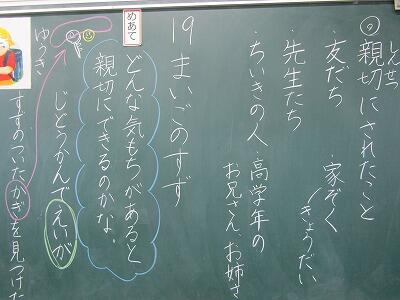 しんせつ
◎親切にされたこと
・友だち ・家ぞく
きょうだい
・先生たち
・ちいきの人・高学年の
お兄さん、お姉さ
19 まいごのすず
めあて
どんな気もちがあると
親切にできるのかな。
じどうかんでえいが
ゆうき
すずのついたかぎを見つけた